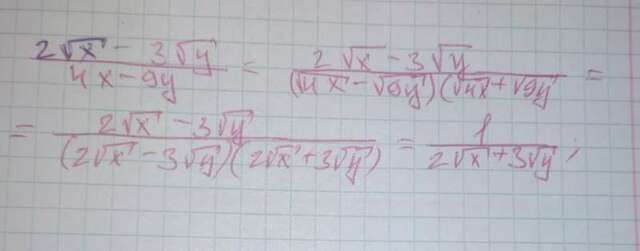 (2√x - 3√y)/(4x - 9y) = (2√x - 3√y)/((√4x - √9y)(√4x + √9y) =
= (2√x - 3√y)/((2√x - 3√y)(2√x + 3√y)) = 1/(2√x + 3√y);